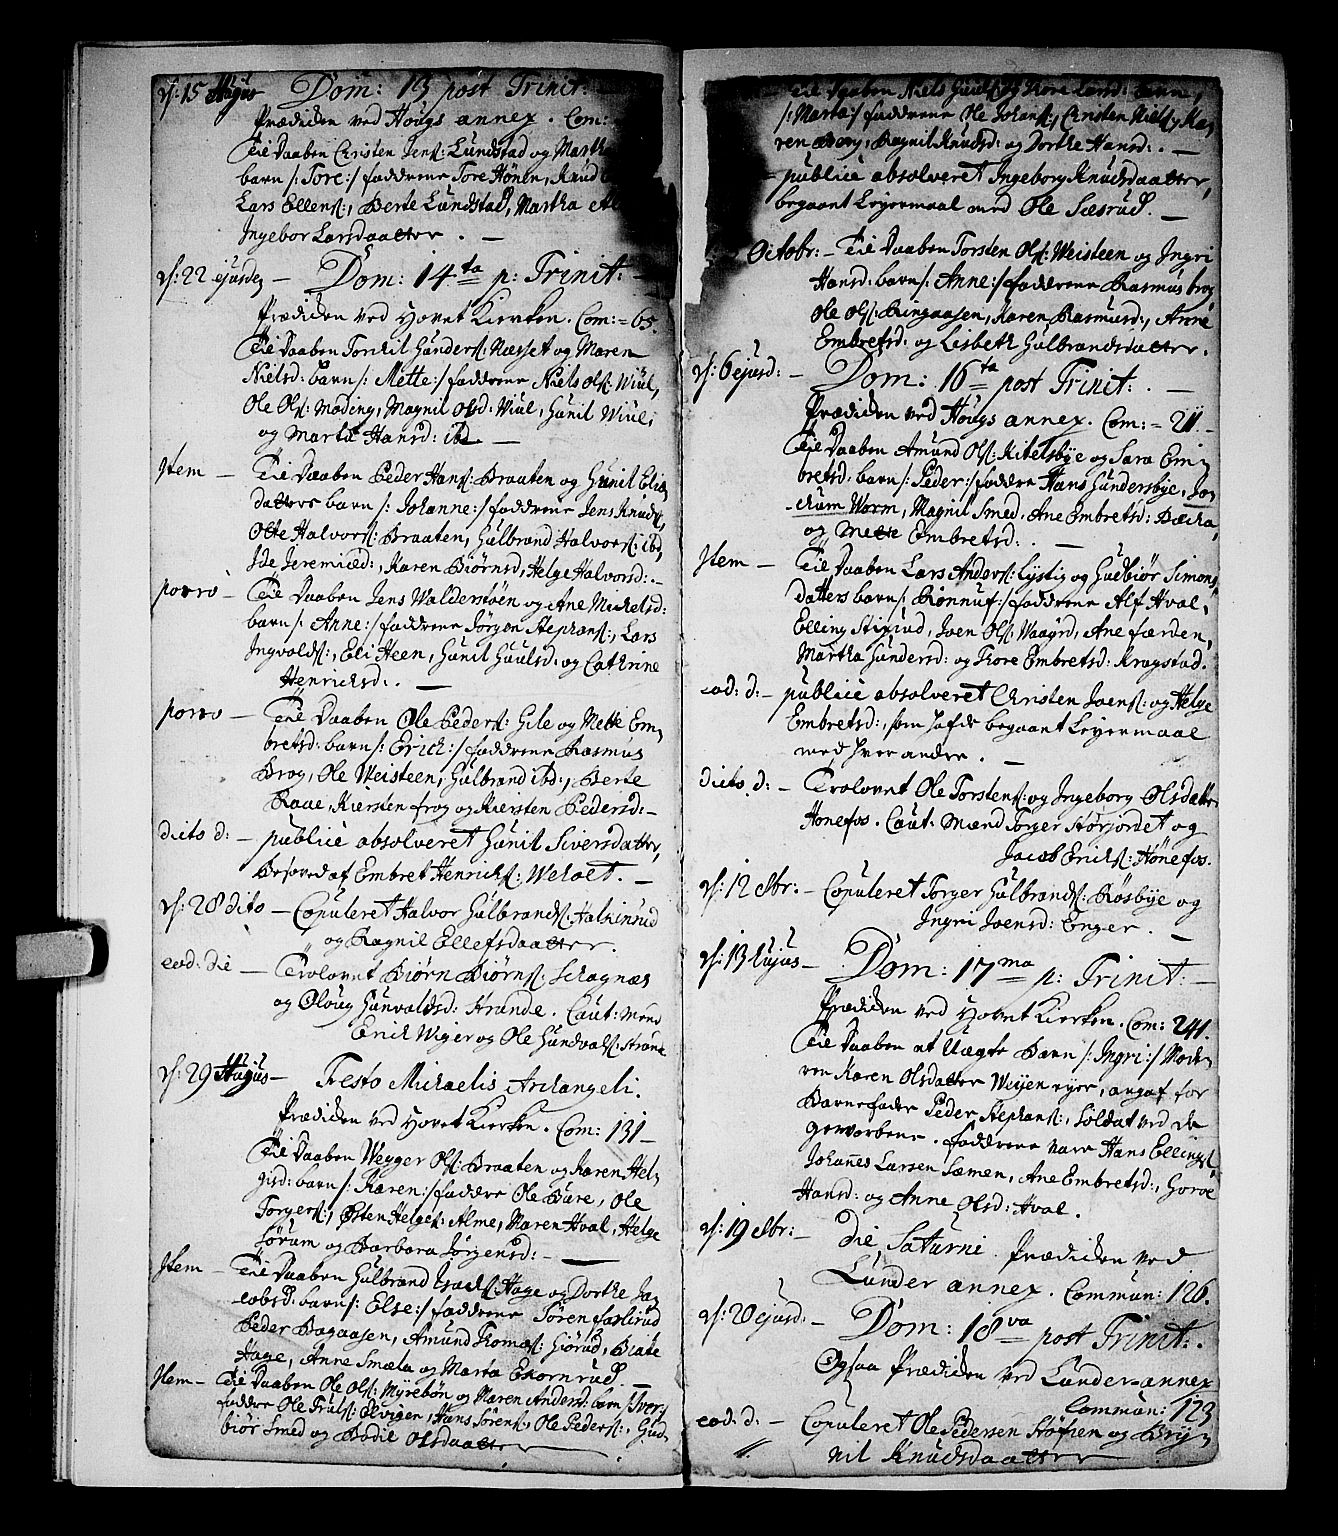 d: 15 Hujus Dom: 13 post Trinit:
Prædiken ved Hougs annex. Com:
Til Daaben Christen Jens: Lundstad og Martha
barn /: Tore:/ fadderne Tore Hönen, Knud
Lars Ellens:, Berte Lundstad, Martha
Ingebor Larsdaatter. —
d: 22 ejusd: — Dom: 14ta p: Trinit: —
Prædiken ved Hovet Kierken. Com: = 65.
Til Daaben Torkil Gunders: Næsset og Maren
Nielsd: barn /: Mette:/ fadderne Niels Ols: Wiul,
Ole Ols: Moding, Magnil Olsd: Wiul, Gunil Wiul,
og Marte Hansd: ibd —
Item — Til Daaben Peder Hans: Braaten og Gunil Elia
datters barn /: Johanne:/ fadderne Jens Knuds:,
Olle Halvors: Braaten, Gulbrand Halvors: ibd,
Ide Jeremiæd:, Karen Biörnsd, Helge Halvorsd: —
porro — Til Daaben Jens Walderstöen og Ane Michelsd:
barn /: Anne:/ fadderne Jörgen Stephans:, Lars
Ingvolds:, Eli Heen, Gunil Guulsd: og Cathrine
Henrichsd: . —
porro — Til Daaben Ole Peders: Gile og Mette Em
bretsd: barn /: Erich:/ fadderne Rasmus
Brog, Ole Weisteen, Gulbrand ibd:, Berte
Raae Kiersten frog og Kiersten Pedersd: —
dicto d: — publice absolveret Gunil Siversdatter,
Besovet af Embret Henrichs: Weholt. —
d: 28 dito — Copuleret Halvor Gulbrands: Halkinrud
og Ragnil Ellefsdaatter.
eod: die — Trolovet Biörn Biörns: Schagnæs
og Oloug Gunvaldsd: Strande. Caut: Mænd
Erich Wiger og Ole Gundvals: Strand
d: 29 Hujus — Festo Michaelis Archangeli.
Prædiken ved Hovet Kierken. Com: 131 —
Til Daaben Wegger Ols: Braaten og Karen Hel
gisd: barn /: Karen:/ faddere Ole Bure, Ole
Torgers:, Östen Helges: Alme, Maren Hval, Helge
Sörum og Barbara Jörgensd: —
Item — Til Daaben Gulbrand Isachs: Hage og Dorthe Ja
cobsd: barn /: Else:/ fadderne Sören
Peder Bagaasen, Amund Thomæs: Giörud, Beate
Hage, Anne Smæla og Marta Ekornrud.
Item — Til Daaben Ole Ols: Myrebön og Maren Andersd: barn /: Iver:/
faddere Ole Truls: Elvigen, Hans Sörens:, Ole Peders:, Gud
biör Smed og Bodil Olsdaatter
Til Daaben Niels Guuls: og Thore Larsd: barn,
/: Marte:/ fadderne Ole Johans:, Christen Niels:, Ma
ren Berg, Ragnil Knudsd: og Dorthe Hansd: . —
publice absolveret Ingeborg Knudsdaatter,
begaaet Leyermaal med Ole Sæsrud. —
Octobr: — Til Daaben Torsten Ols: Weisteen og Ingri
Hansd: barn /: Anne:/ fadderne Rasmus brog,
Ole Ols: Ringaasen, Karen Rasmusd:, Anne
Embretsd: og Lisbeth Gulbrandsdatter.
d: 6 ejusd: — Dom: 16ta post Trinit: . —
Prædiken ved Hougs annex. Com: = 211 —
Til Daaben Amund Ols: Kitelsbye og Sara Em
bretsd: barn /: Peder:/ faddre Hans Gundersbye, Jo
chum Worm, Magnil Smed, Ane Embretsd: Bæcha,
og Mette Embretsd: . —
Item — Til Daaben Lars Anders: Lystig og Gudbiör Simons
datters barn /: Rönnuf:/ fadderne Alf Hval,
Elling Stixrud, Joen Ols: Vaagrd, Ane færden,
Martha Gundersd: og Thore Embretsd: Kragstad.
eod: d: — publice absolveret Christen Joens: og Helge
Embretsd:, som hafde begaaet Leyermaal
med hverandre. —
dicto d: — Trolovet Ole Torstens: og Ingeborg Olsdatter
Hönefos. Caut. Mænd Torger Störjordet og
Jacob Erichs: Hönefos.
d: 12 8br: — Copuleret Torger Gulbrands: Rösbye og
Ingri Joensd: Enger. —
d: 13 Hujus — Dom: 17ma p: Trinit: —
Prædiken ved Hovet Kierken. Com: 241.
Til Daaben et Uægte Barn /: Ingri:/ Mode
ren Karen Olsdatter Weyen eyer, angaf for
Barnefader Peder Stephans:, Soldat ved de
geworbene. fadderne vare Hans Ellings:,
Johannes Larsen Sæmen, Ane Embretsd:, Goroe
Hansd: og Anne Olsd: Hval.
d: 19 8br: — Die Saturni. Prædiken ved
Lunder annex. Commun: 126.
d: 20 ejusd: — Dom: 18va post Trinit: .
Ogsaa Prædiken ved Lunder=annex
Commun: 123
eod: d: — Copuleret Ole Pedersen Stöfien og Bry
nil Knudsdaatter